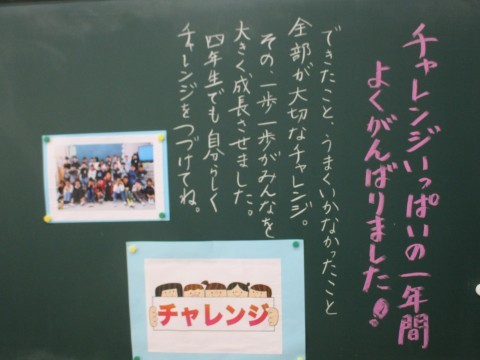 チャレンジいっぱいの一年間
よくがんばりました!
できたこと、うまくいかなかったこと
全部が大切なチャレンジ。
その、一歩一歩がみんなを
大きく成長させました。
四年生でも自分らしく
チャレンジをつづけてね。
チャレンジ